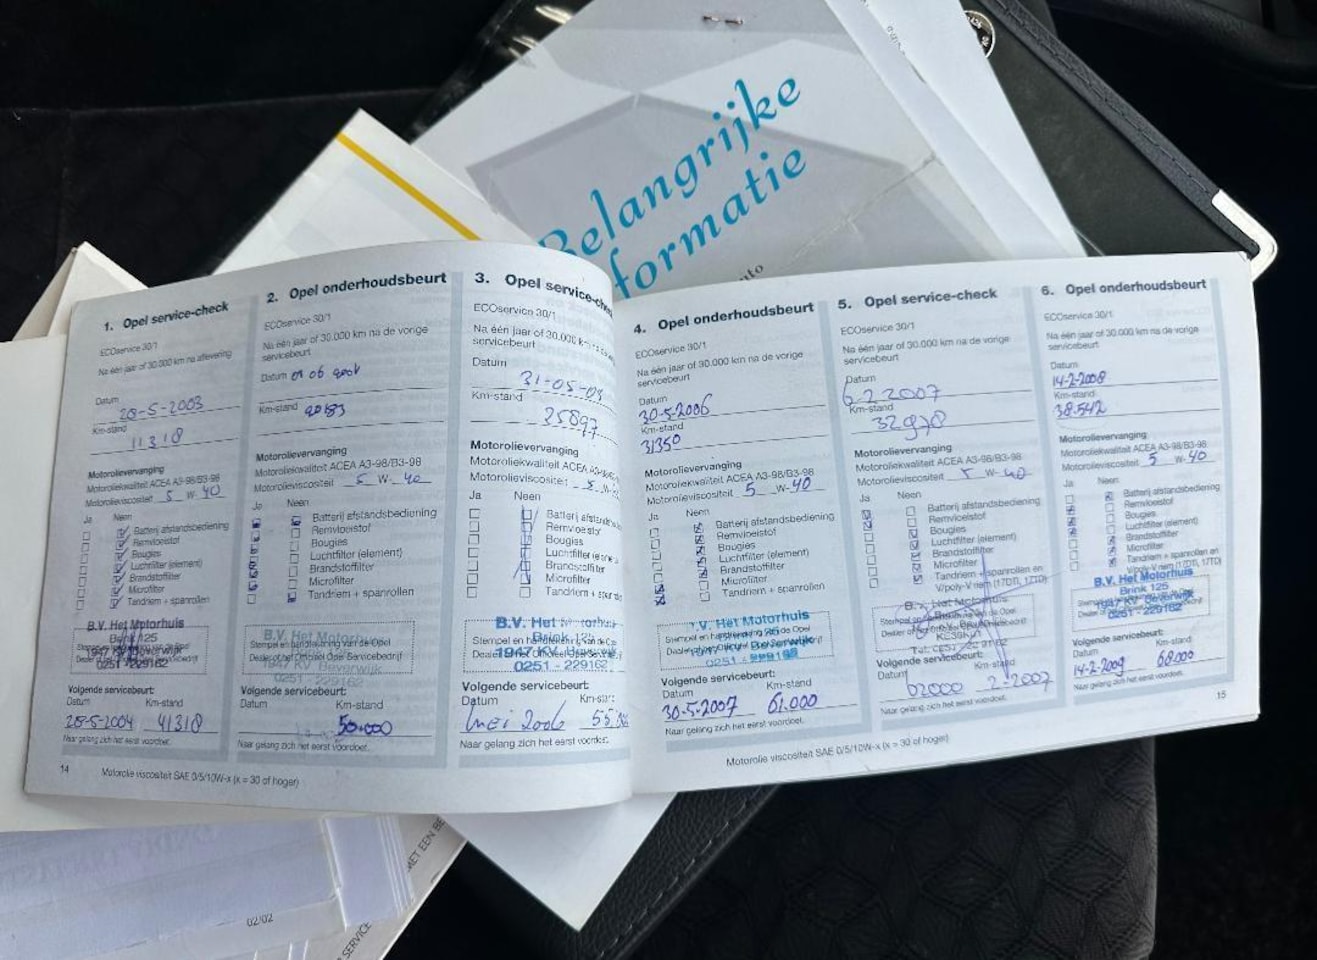 Belangrijke
formatie
1. Opel service-check
ECOservice 30/1
Na één jaar of 30.000 km na aflevering
Datum
28-5-2003
Km-stand
11318
Motorolievervanging
Motoroliekwaliteit ACEA A3-98/B3-98
Motorolieviscositeit 5 W-40
Ja Neen
Batterij afstandsbediening
Remvloeistof
Bougies
Luchtfilter (element)
Brandstoffilter
Microfilter
Tandriem + spanrollen
B.V. Het Motorhuis
Brink 125
0251 - 229162
Volgende servicebeurt:
Datum Km-stand
28-5-2004 41318
Naar gelang zich het eerst voordoet.
14
Motorolie viscositeit SAE 0/5/10W-x (x = 30 of hoger)
2. Opel onderhoudsbeurt
ECOservice 30/1
Na één jaar of 30.000 km na de vorige
servicebeurt
Datum
Km-stand
Motorolievervanging
Motoroliekwaliteit ACEA A3-98/B3-98
Motorolieviscositeit 5 W-40
Ja Neen
Batterij afstandsbediening
Remvloeistof
Bougies
Luchtfilter (element)
Brandstoffilter
Microfilter
Tandriem + spanrollen
B.V. Het Motorhuis
Stempel en handtekening van de Opel
Dealer of het Officieel Opel Servicebedrijf
1947 KV Beverwijk
0251 - 229162
Volgende servicebeurt:
Datum Km-stand
50.000
Naar gelang zich het eerst voordoet.
3. Opel service-che
ECOservice 30/1
Na één jaar of 30.000 km
servicebeurt
Datum
31-05-0
Km-stand
25897
Motorolievervanging
Motoroliekwaliteit ACEA
Motorolieviscositeit 5
Ja Neen
Batterij afstands
Remvloeistof
Bougies
Luchtfilter
Brandstoffilter
Microfilter
Tandriem +
B.V. Het Motorhuis
Stempel en handtekening van de
Brink 125
1947 KV
0251 - 229162
Volgende servicebeurt:
Datum Km-st
mei 2006 55
Naar gelang zich het eerst voordoet.
4. Opel onderhoudsbeurt
ECOservice 30/1
Na één jaar of 30.000 km na de vorige
servicebeurt
Datum
30-5-2006
Km-stand
31350
Motorolievervanging
Motoroliekwaliteit ACEA A3-98/B3-98
Motorolieviscositeit 5 W-40
Ja Neen
Batterij afstandsbediening
Remvloeistof
Bougies
Luchtfilter (element)
Brandstoffilter
Microfilter
Tandriem + spanrollen
.V. Het Motorhuis
1947 KV Beverwijk
0251 -
Volgende servicebeurt:
Datum Km-stand
30-5-2007 61.000
Naar gelang zich het eerst voordoet.
Motorolie viscositeit SAE 0/5/10W-x (x = 30 of hoger)
5. Opel service-check
ECOservice 30/1
Na één jaar of 30.000 km na de vorige
servicebeurt
Datum
6-2-2007
Km-stand
32970
Motorolievervanging
Motoroliekwaliteit ACEA A3-98/B3-98
Motorolieviscositeit 5 W-40
Ja Neen
Batterij afstandsbediening
Remvloeistof
Bougies
Luchtfilter (element)
Brandstoffilter
Microfilter
Tandriem + spanrollen en
V/poly-V riem (17DTI, 17TD)
Volgende servicebeurt:
Datum Km-stand
62000 2-2007
Naar gelang zich het eerst voordoet.
6. Opel onderhoudsbeurt
ECOservice 30/1
Na één jaar of 30.000 km na de vorige
servicebeurt
Datum
14-2-2008
Km-stand
38.542
Motorolievervanging
Motoroliekwaliteit ACEA A3-98/B3-98
Motorolieviscositeit 5 W-40
Ja Neen
Batterij afstandsbediening
Remvloeistof
Bougies
Luchtfilter (element)
Brandstoffilter
Microfilter
Tandriem + spanrollen en
V/poly-V riem (17DTI, 17TD)
B.V. Het Motorhuis
Brink 125
1947 KV Beverwijk
0251 - 229162
Volgende servicebeurt:
Datum Km-stand
14-2-2009 68.000
Naar gelang zich het eerst voordoet.
15
02/02
MET EEN BE
SERVICE